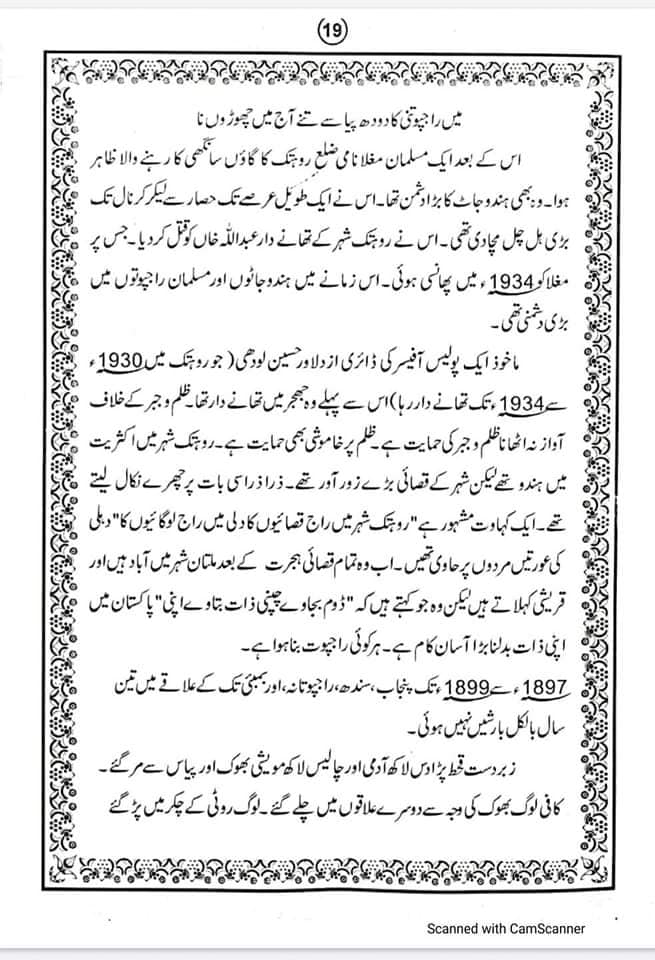 19
میں راجپوتنی کا دودھ پیا سے تنے آج میں چھوڑوں نا
اس کے بعد ایک مسلمان مغلا نامی ضلع روہتک کا گاؤں سانگھی کا رہنے والا ظاہر
ہوا۔ وہ بھی ہندو جاٹ کا بڑا دشمن تھا۔ اس نے ایک طویل عرصے تک حصار سے لیکر کرنال تک
بڑی ہل چل مچا دی تھی۔ اس نے روہتک شہر کے تھانے دار عبداللہ خاں کو قتل کر دیا۔ جس پر
مغلا کو 1934ء میں پھانسی ہوئی۔ اس زمانے میں ہندو جاٹوں اور مسلمان راجپوتوں میں
بڑی دشمنی تھی۔
ماخوذ ایک پولیس آفیسر کی ڈائری از دلاور حسین لودھی (جو روہتک میں 1930ء
سے 1934ء تک تھانے دار رہا) اس سے پہلے وہ جھجر میں تھانے دار تھا۔ ظلم و جبر کے خلاف
آواز نہ اٹھانا ظلم و جبر کی حمایت ہے۔ ظلم پر خاموشی بھی حمایت ہے۔ روہتک شہر میں اکثریت
میں ہندو تھے لیکن شہر کے قصائی بڑے زور آور تھے۔ ذرا ذرا سی بات پر چھرے نکال لیتے
تھے۔ ایک کہاوت مشہور ہے "روہتک شہر میں راج قصائیوں کا دلی میں راج لوگائیوں کا" دہلی
کی عورتیں مردوں پر حاوی تھیں۔ اب وہ تمام قصائی ہجرت کے بعد ملتان شہر میں آباد ہیں اور
قریشی کہلاتے ہیں لیکن وہ جو کہتے ہیں کہ "ڈوم بجاوے چپنی ذات بتاوے اپنی" پاکستان میں
اپنی ذات بدلنا بڑا آسان کام ہے۔ ہر کوئی راجپوت بنا ہوا ہے۔
1897ء سے 1899ء تک پنجاب، سندھ، راجپوتانہ، اور بمبئی تک کے علاقے میں تین
سال بالکل بارشیں نہیں ہوئی۔
زبردست قحط پڑا دس لاکھ آدمی اور چالیس لاکھ مویشی بھوک اور پیاس سے مر گئے۔
کافی لوگ بھوک کی وجہ سے دوسرے علاقوں میں چلے گئے۔ لوگ روٹی کے چکر میں پڑ گئے
Scanned with CamScanner